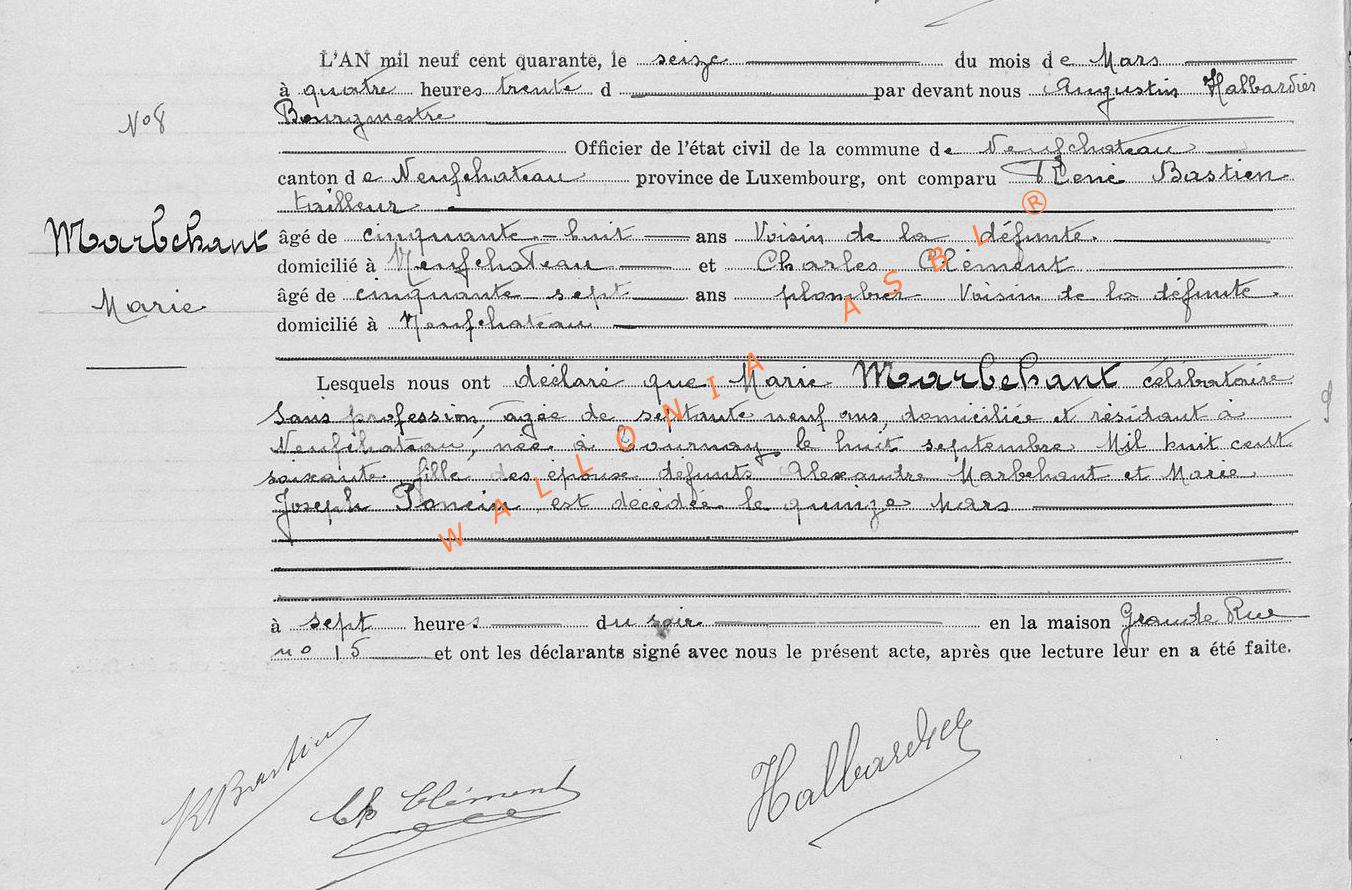 L'AN mil neuf cent quarante, le seize du mois de Mars
à quatre heures trente d par devant nous Augustin Halbardier
Bourgmestre
Nº 8
Officier de l'état civil de la commune de Neufchateau
canton de Neufchateau province de Luxembourg, ont comparu René Bastien
tailleur
Marbehant
âgé de cinquante-huit ans Voisin de la défunte.
domicilié à Neufchateau et Charles Clément
Marie
âgé de cinquante sept ans plombier Voisin de la défunte.
domicilié à Neufchateau
Lesquels nous ont déclaré que Marie Marbehant célibataire
sans profession, agée de septante neuf ans, domiciliée et résidant à
Neufchateau, née à Tournay le huit septembre Mil huit cent
soixante. fille des epoux defunts Alexandre Marbehant et Marie
Joseph Poncin est décédée le quinze Mars
à sept heures du soir en la maison Grande Rue
nº 15 et ont les déclarants signé avec nous le présent acte, après que lecture leur en a été faite.
WALLONIA ASBL ®
R Bastien
Ch Clément
Halbardier